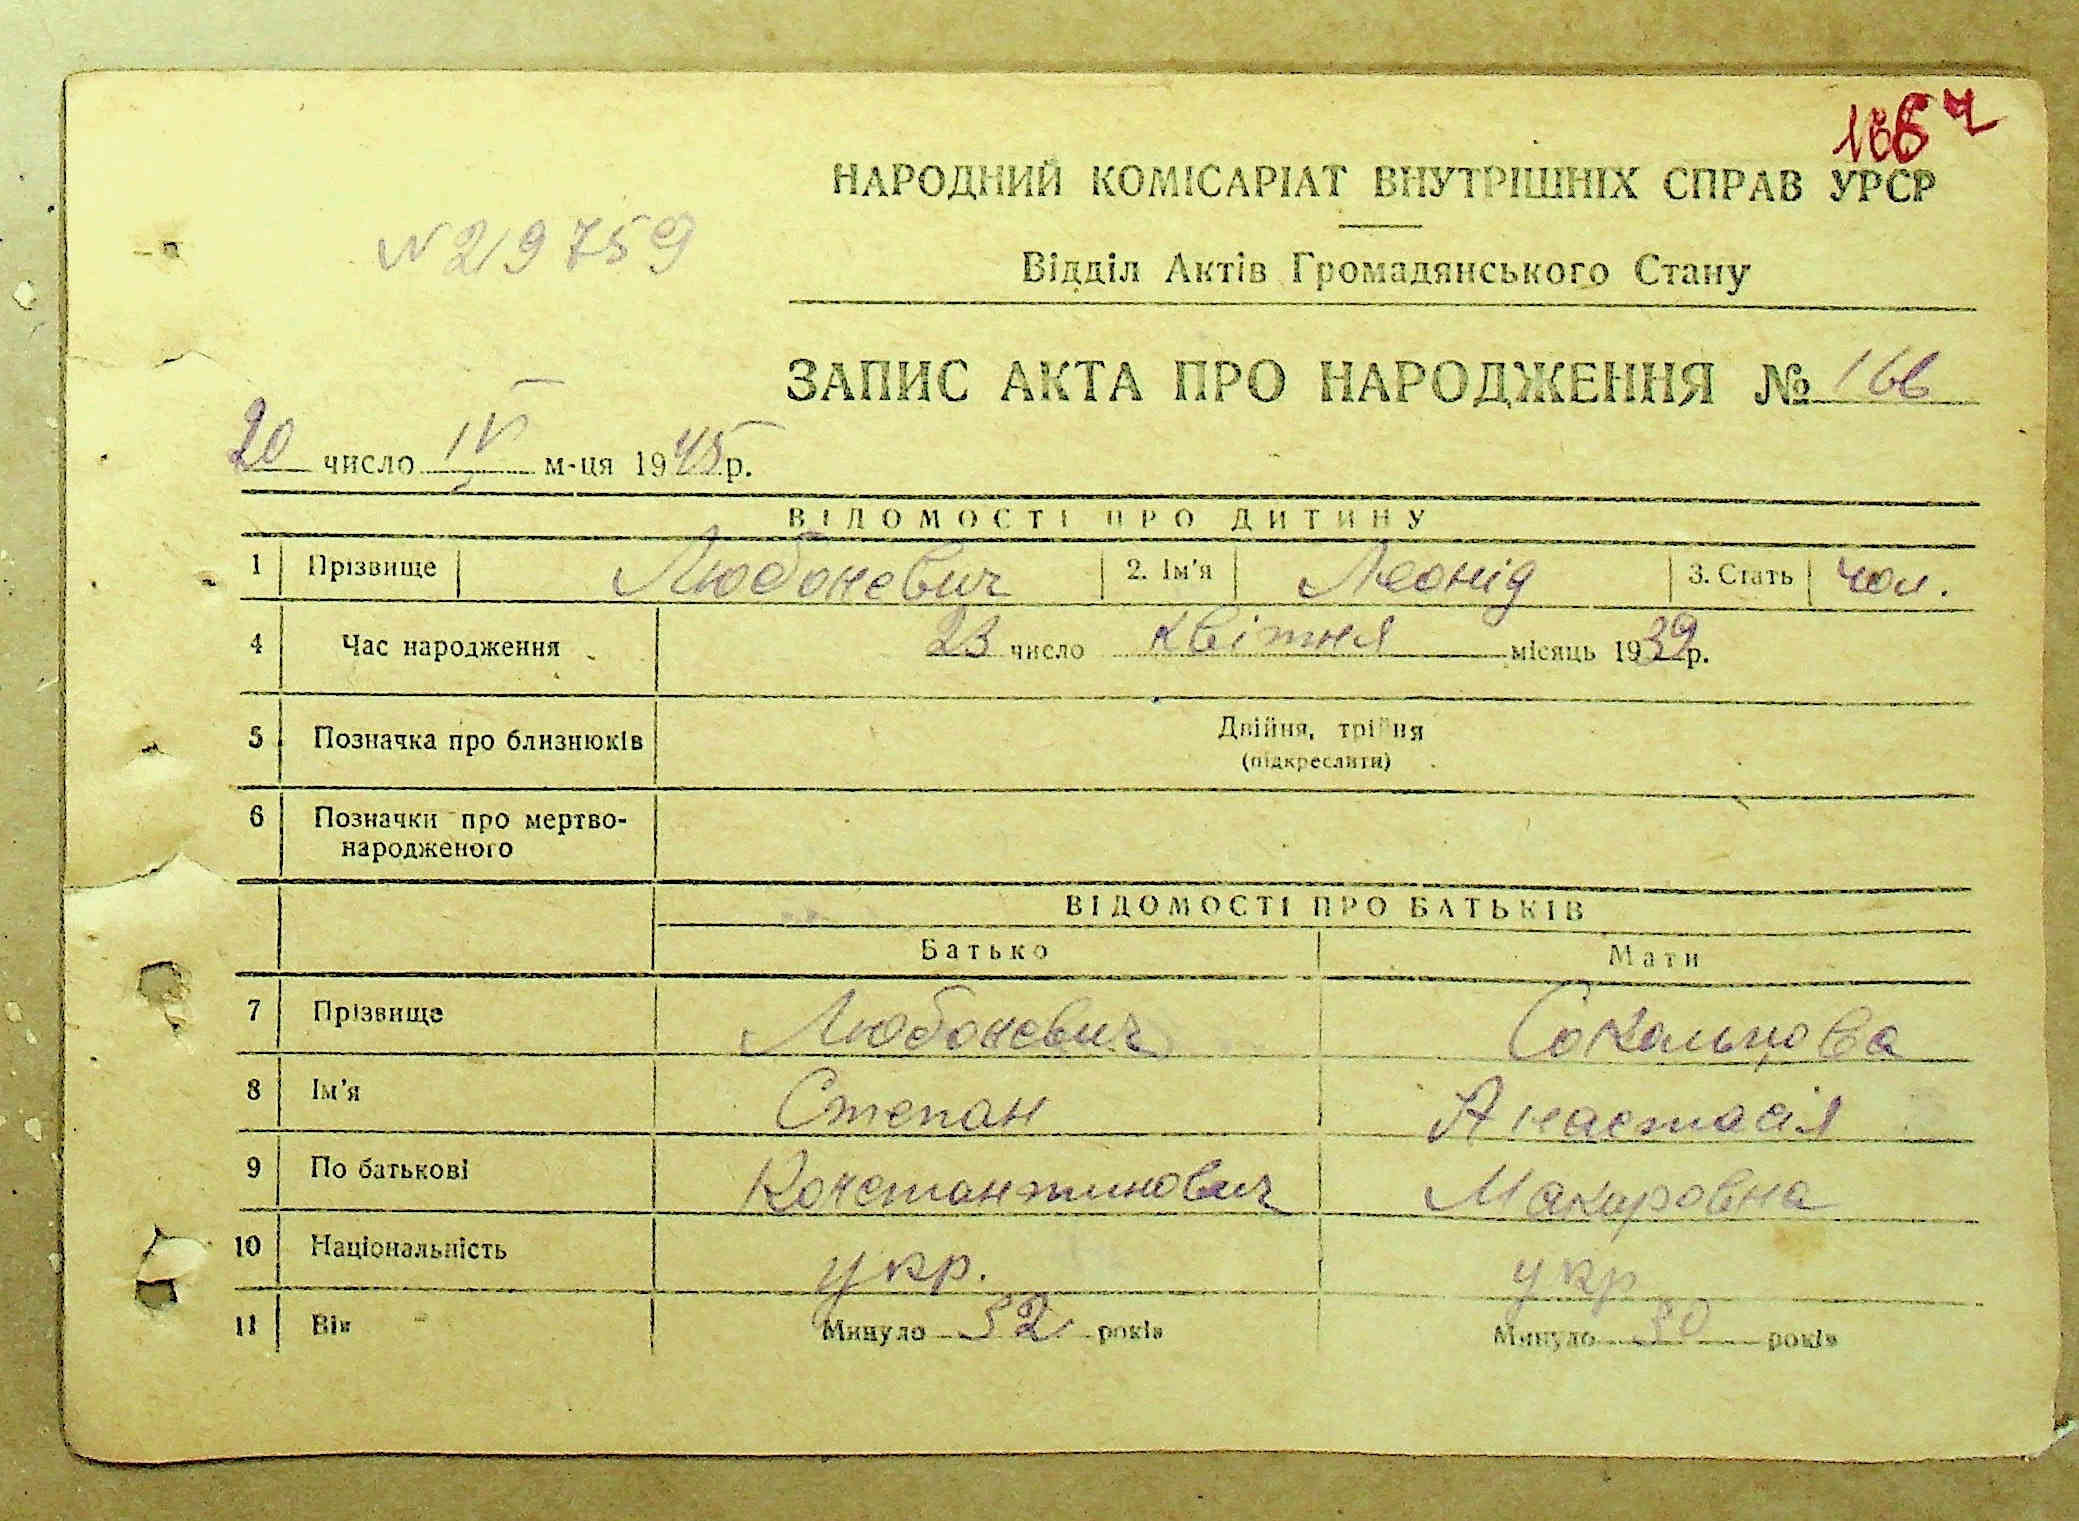 НАРОДНИЙ КОМІСАРІАТ ВНУТРІШНІХ СПРАВ УРСР
N 29759
Відділ Актів Громадянського Стану
ЗАПИС АКТА ПРО НАРОДЖЕННЯ № 166
20 число IV м-ця 1945 р.
ВІДОМОСТІ ПРО ДИТИНУ
1 Прізвище Любоневич 2. Ім'я Леонід 3. Стать чол.
4 Час народження 23 число квітня місяць 1939 р.
5 Позначка про близнюків Двійня, трійня
(підкреслити)
6 Позначки про мертво-
народженого
ВІДОМОСТІ ПРО БАТЬКІВ
Батько Мати
7 Прізвище Любоневич Сокольцова
8 Ім'я Степан Анастасія
9 По батькові Константинович Макаровна
10 Національність укр. укр
11 Вік Минуло 32 років Минуло 30 років